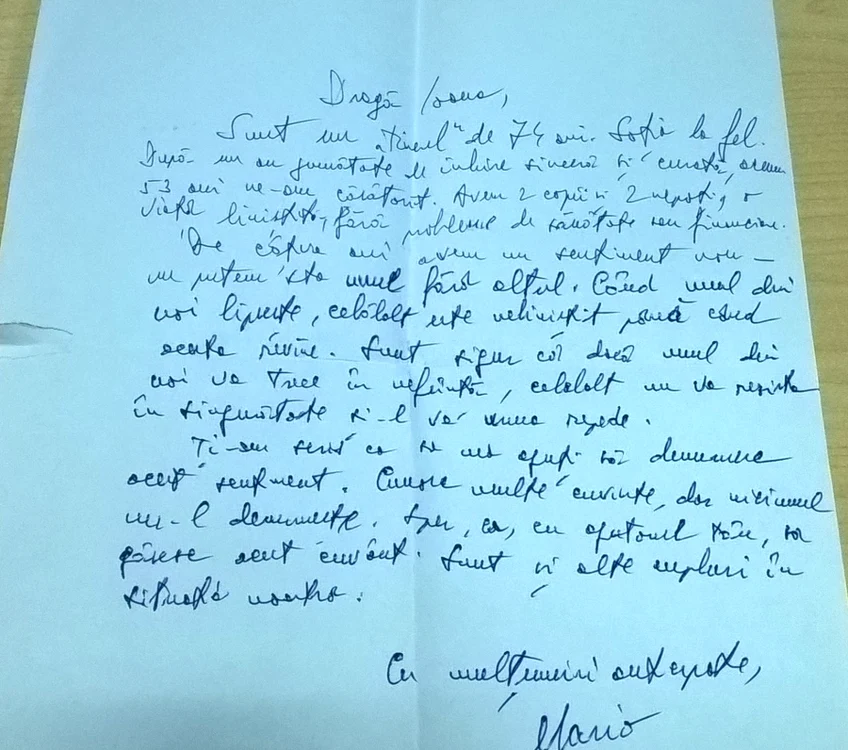 Dragă Ioana,
Sunt un „tînăr" de 74 ani. Soția la fel.
După un an jumătate de iubire sinceră și curată, acum
53 ani ne-am căsătorit. Avem 2 copii și 2 nepoți, o
viață liniștită, fără probleme de sănătate sau financiare.
De câțiva ani avem un sentiment nou –
nu putem sta unul fără altul. Când unul din
noi lipsește, celălalt este neliniștit până când
acesta revine. Sunt sigur că dacă unul din
noi va trece în neființă, celălalt nu va rezista
în singurătate și-l va urma repede.
Ți-am scris ca să mă ajuți să denumesc
acest sentiment. Cunosc multe cuvinte, dar niciunul
nu-l denumește. Sper, ca, cu ajutorul tău, să
găsesc acest cuvânt. Sunt și alte cupluri în
situația noastră.
Cu mulțumiri anticipate,
Mario